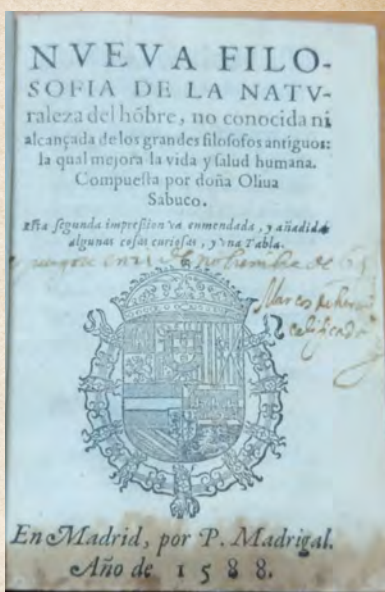 NVEVA FILO-
SOFIA DE LA NATV-
raleza del hõbre, no conocida ni
alcançada de los grandes filosofos antiguos:
la qual mejora la vida y salud humana.
Compuesta por doña Oliua
Sabuco.
Esta segunda impression va enmendada, y añadidas
algunas cosas curiosas, y vna Tabla.
Marcos
En Madrid, por P. Madrigal.
Año de 1588.